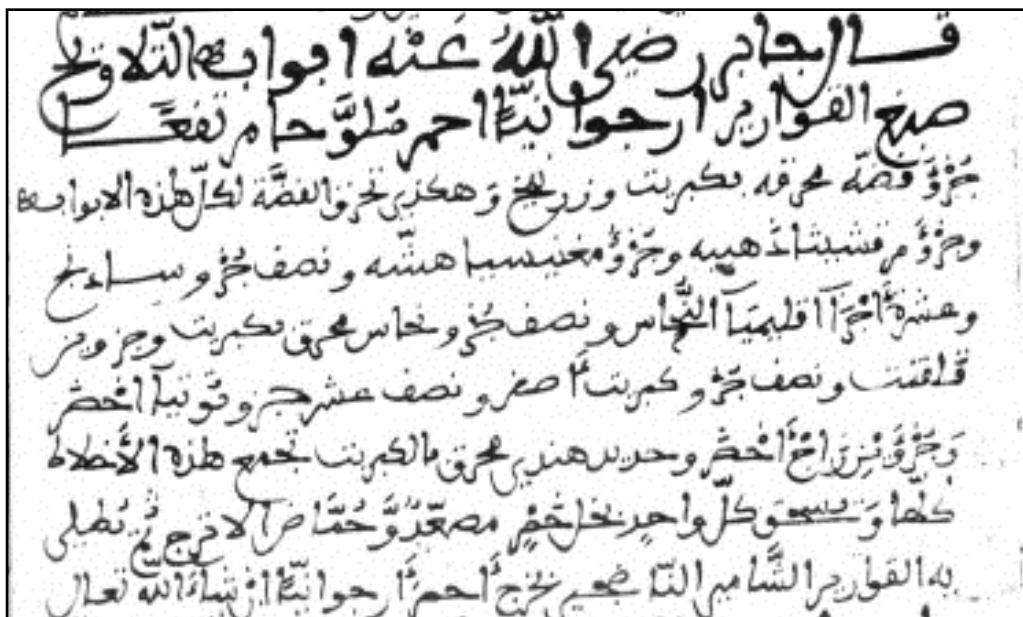 قال جابر رضي الله عنه ابواب التلاويح
صبغ القوارير ارجوانيًّا احمر ملوَّحا مرتفعًا
جزؤ فضّه محرقه بكبريت وزرنيخ وهكذى تحرق الفضّة لكلّ هذه الابواب
وجزؤ مرقشيثا ذهبيه وجزؤ مغنيسيا هشّه ونصف جزؤ ساذنج
وعشرة أجزآ اقليميآ النُّحاس ونصف جزؤ نحاس محرق بكبريت وجزؤين
قلقنت ونصف جزؤ كبريت أصفر ونصف عشر جزؤ توتيآ أخضر
وَجزؤين زاج أخضر وحديد هندي محرق بالكبريت تجمع هذه الأخلاط
كلّها وَتسحق كلّ واحدٍ بخل خمرٍ مصعّدٍ وَّحُمّاض الاترج ثمّ تُطلي
به القوارير الشّامي النّاضجه يخرج أحمر أرجوانيًّا ان شاءَ اللّه تعالى